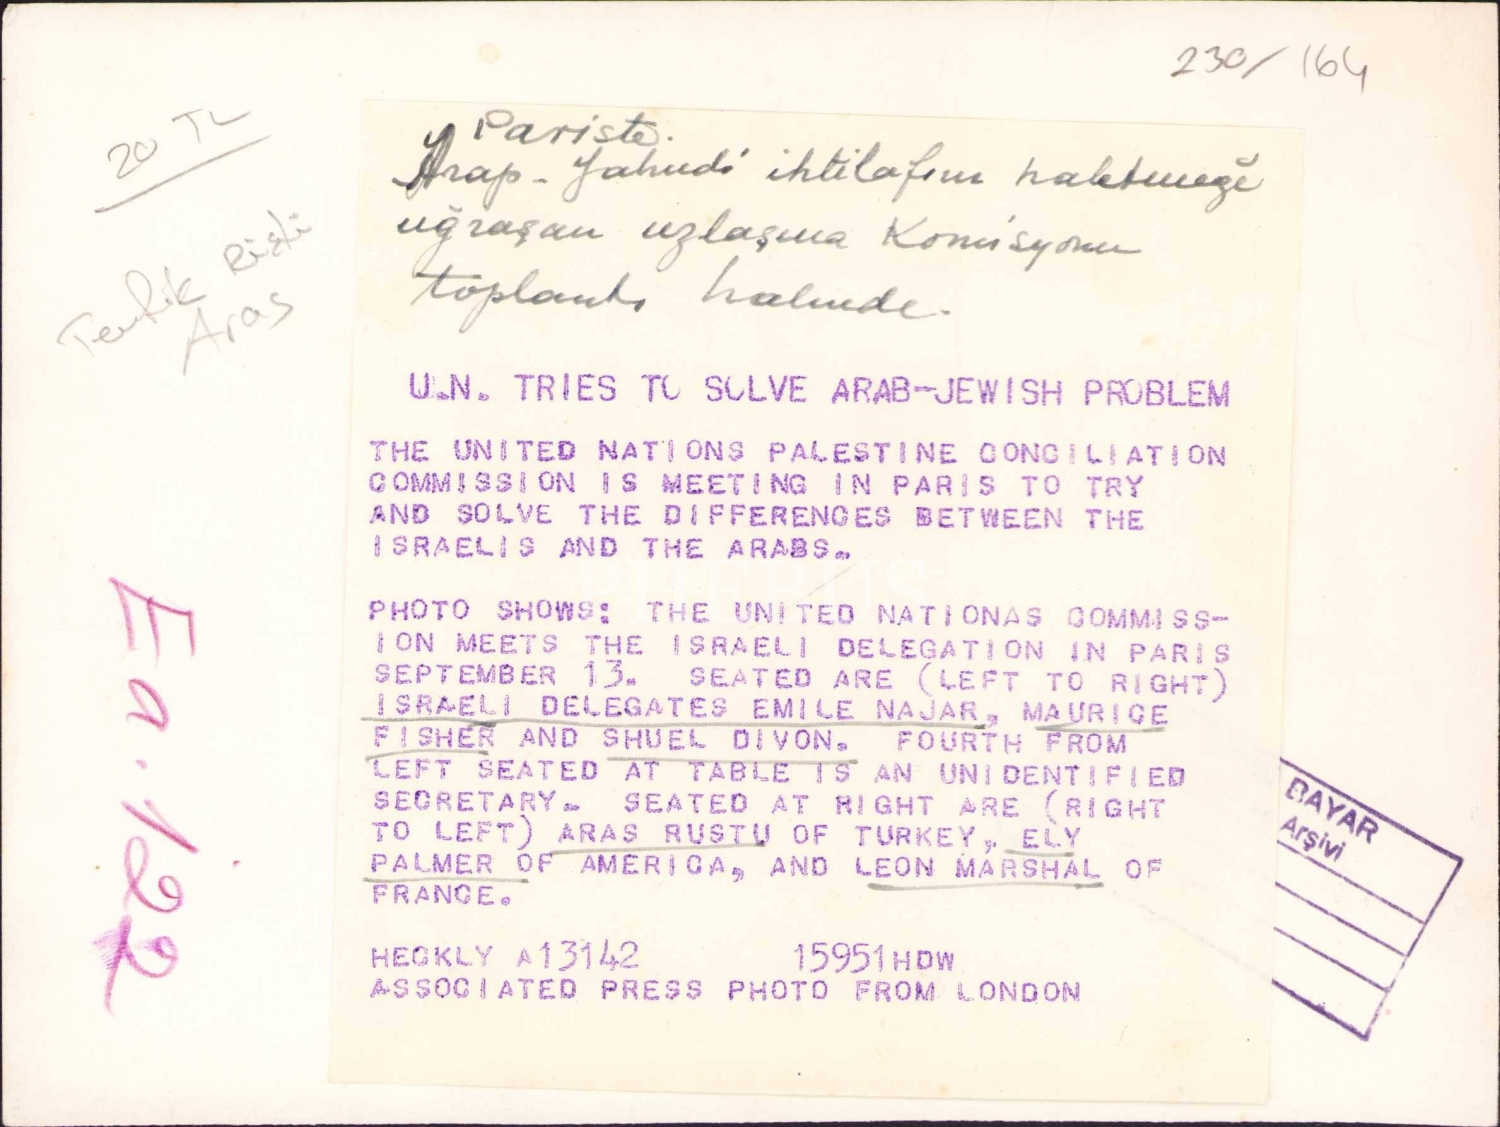 230/164
20 TL
Tevfik Rüştü
Aras
Pariste.
Arap-Yahudi ihtilafını halletmeğe
uğraşan uzlaşma Komisyonu
toplantı halinde.
U.N. TRIES TO SOLVE ARAB-JEWISH PROBLEM
THE UNITED NATIONS PALESTINE CONCILIATION
COMMISSION IS MEETING IN PARIS TO TRY
AND SOLVE THE DIFFERENCES BETWEEN THE
ISRAELIS AND THE ARABS.
PHOTO SHOWS: THE UNITED NATIONAS COMMISS-
ION MEETS THE ISRAELI DELEGATION IN PARIS
SEPTEMBER 13. SEATED ARE (LEFT TO RIGHT)
ISRAELI DELEGATES EMILE NAJAR, MAURICE
FISHER AND SHUEL DIVON. FOURTH FROM
LEFT SEATED AT TABLE IS AN UNIDENTIFIED
SECRETARY. SEATED AT RIGHT ARE (RIGHT
TO LEFT) ARAS RUSTU OF TURKEY, ELY
PALMER OF AMERICA, AND LEON MARSHAL OF
FRANCE.
HECKLY A13142 15951HDW
ASSOCIATED PRESS PHOTO FROM LONDON
Ea.122
BAYAR
Arşivi